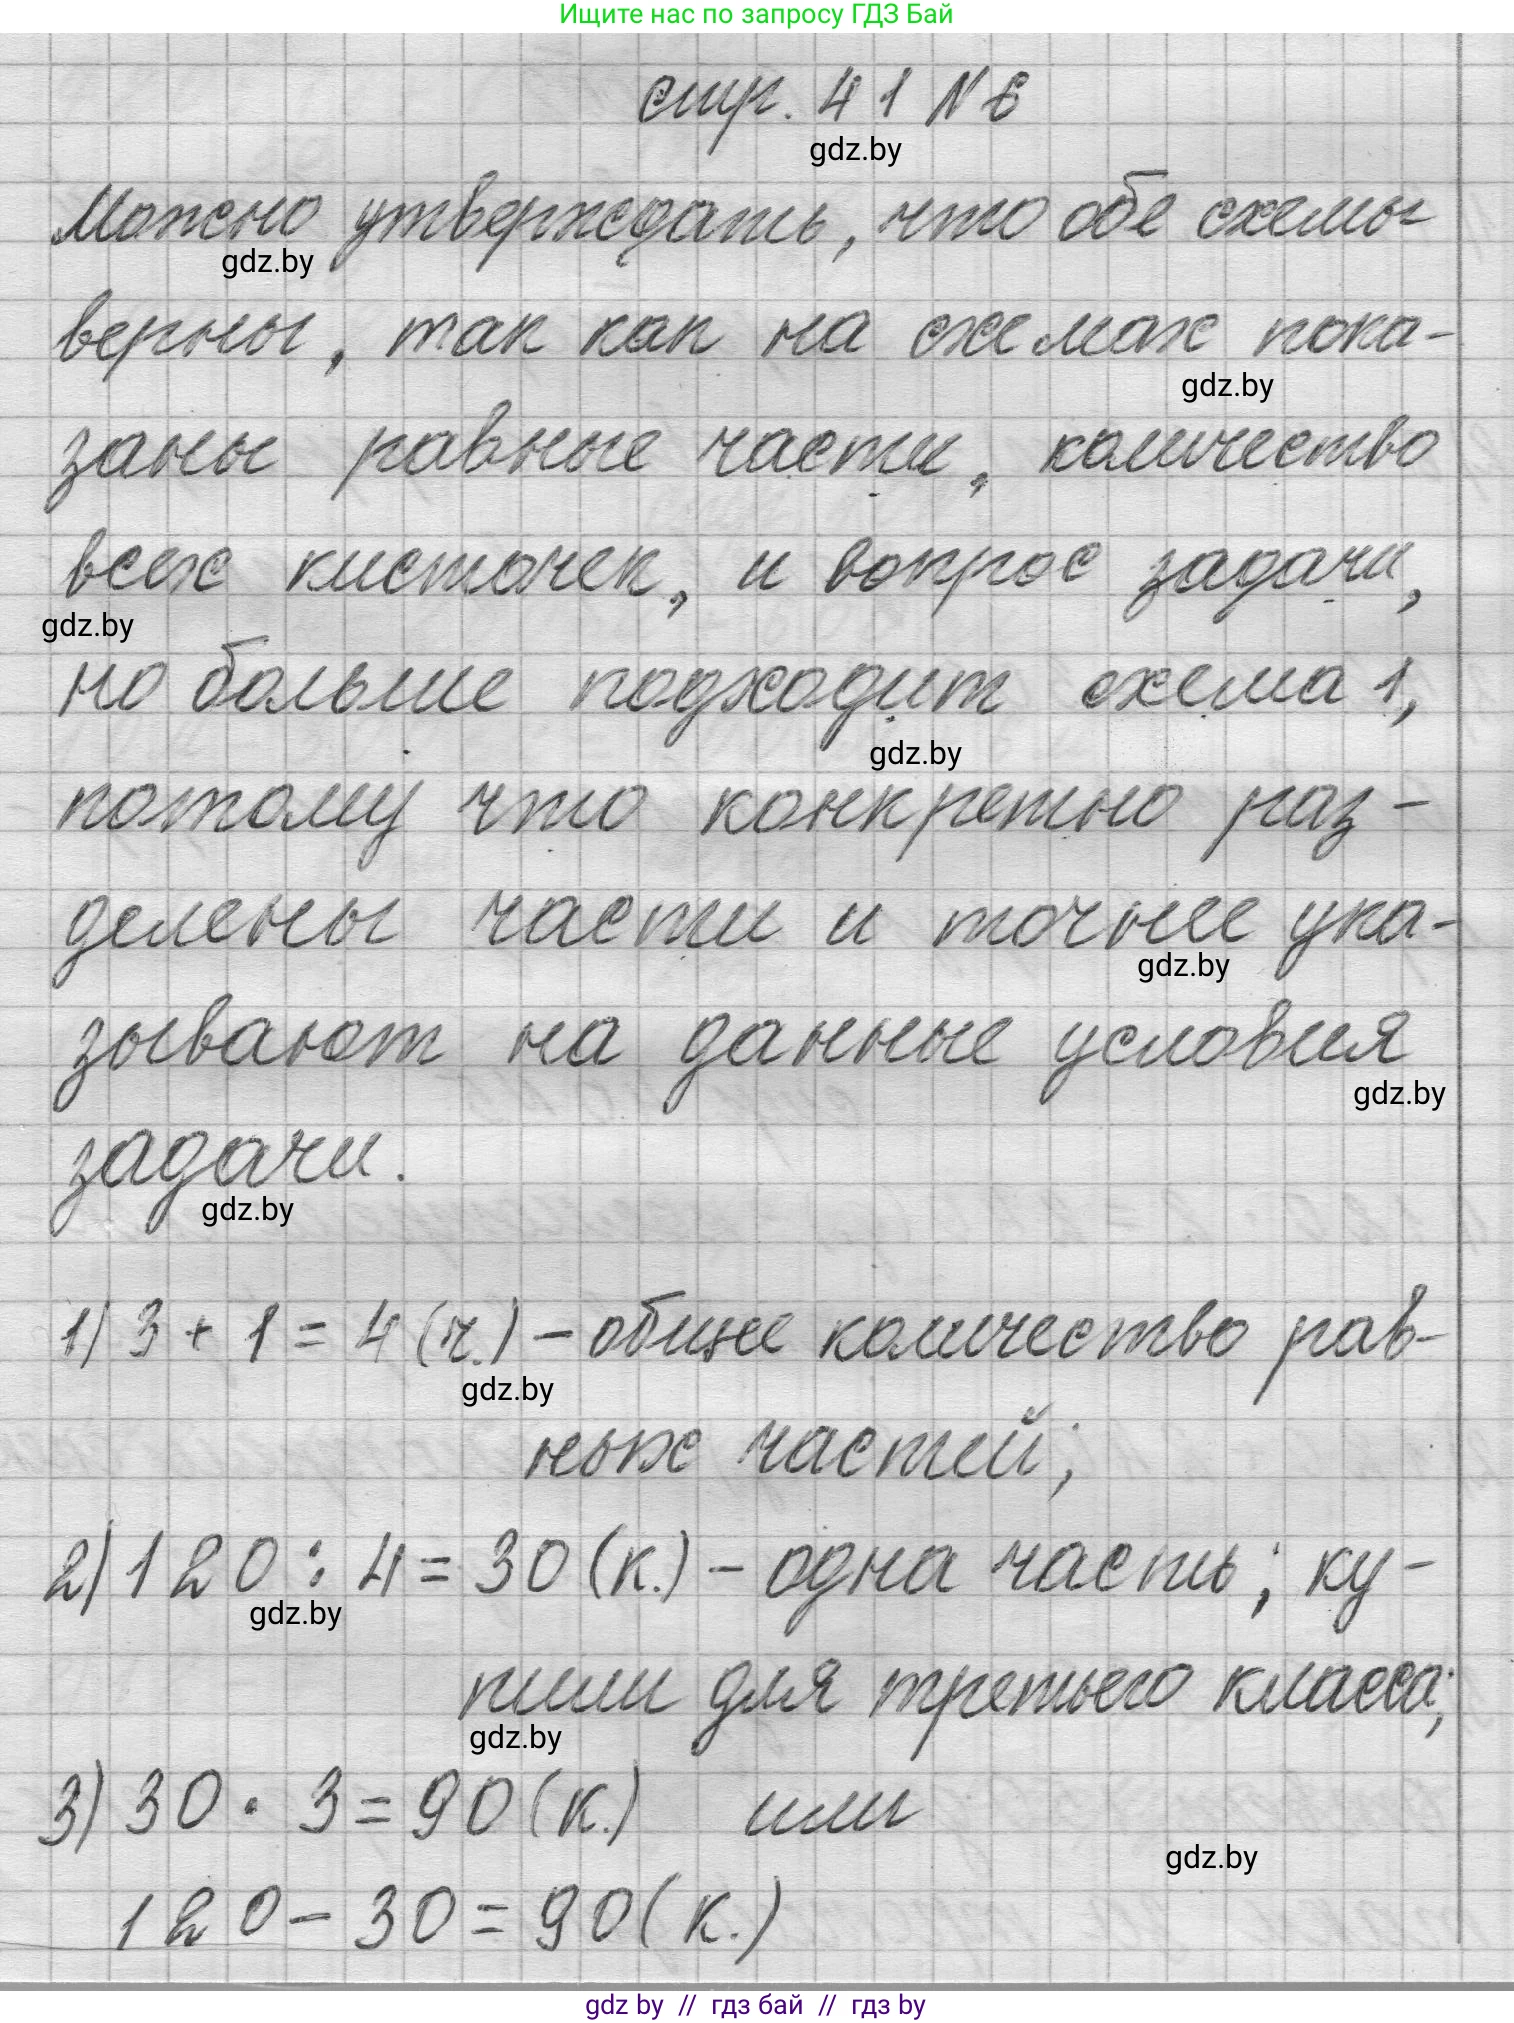 Ищите нас по запросу ГДЗ Бай
стр. 41 N 6
gdz.by
Можно утверждать, что обе схемы
gdz.by
верны, так как на схемах пока-
gdz.by
заны равные части, количество
всех кисточек, и вопрос задачи,
gdz.by
но больше подходит схема 1,
gdz.by
потому что конкретно раз-
делены части и точнее ука-
gdz.by
зывают на данные условия
gdz.by
задачи.
gdz.by
1) 3 + 1 = 4 (ч.) - общее количество рав-
gdz.by
ных частей;
2) 120 : 4 = 30 (к.) - одна часть; ку-
gdz.by
пили для третьего класса;
gdz.by
3) 30 · 3 = 90 (к.) или
gdz.by
120 - 30 = 90 (к.)
gdz by // гдз бай // гдз by